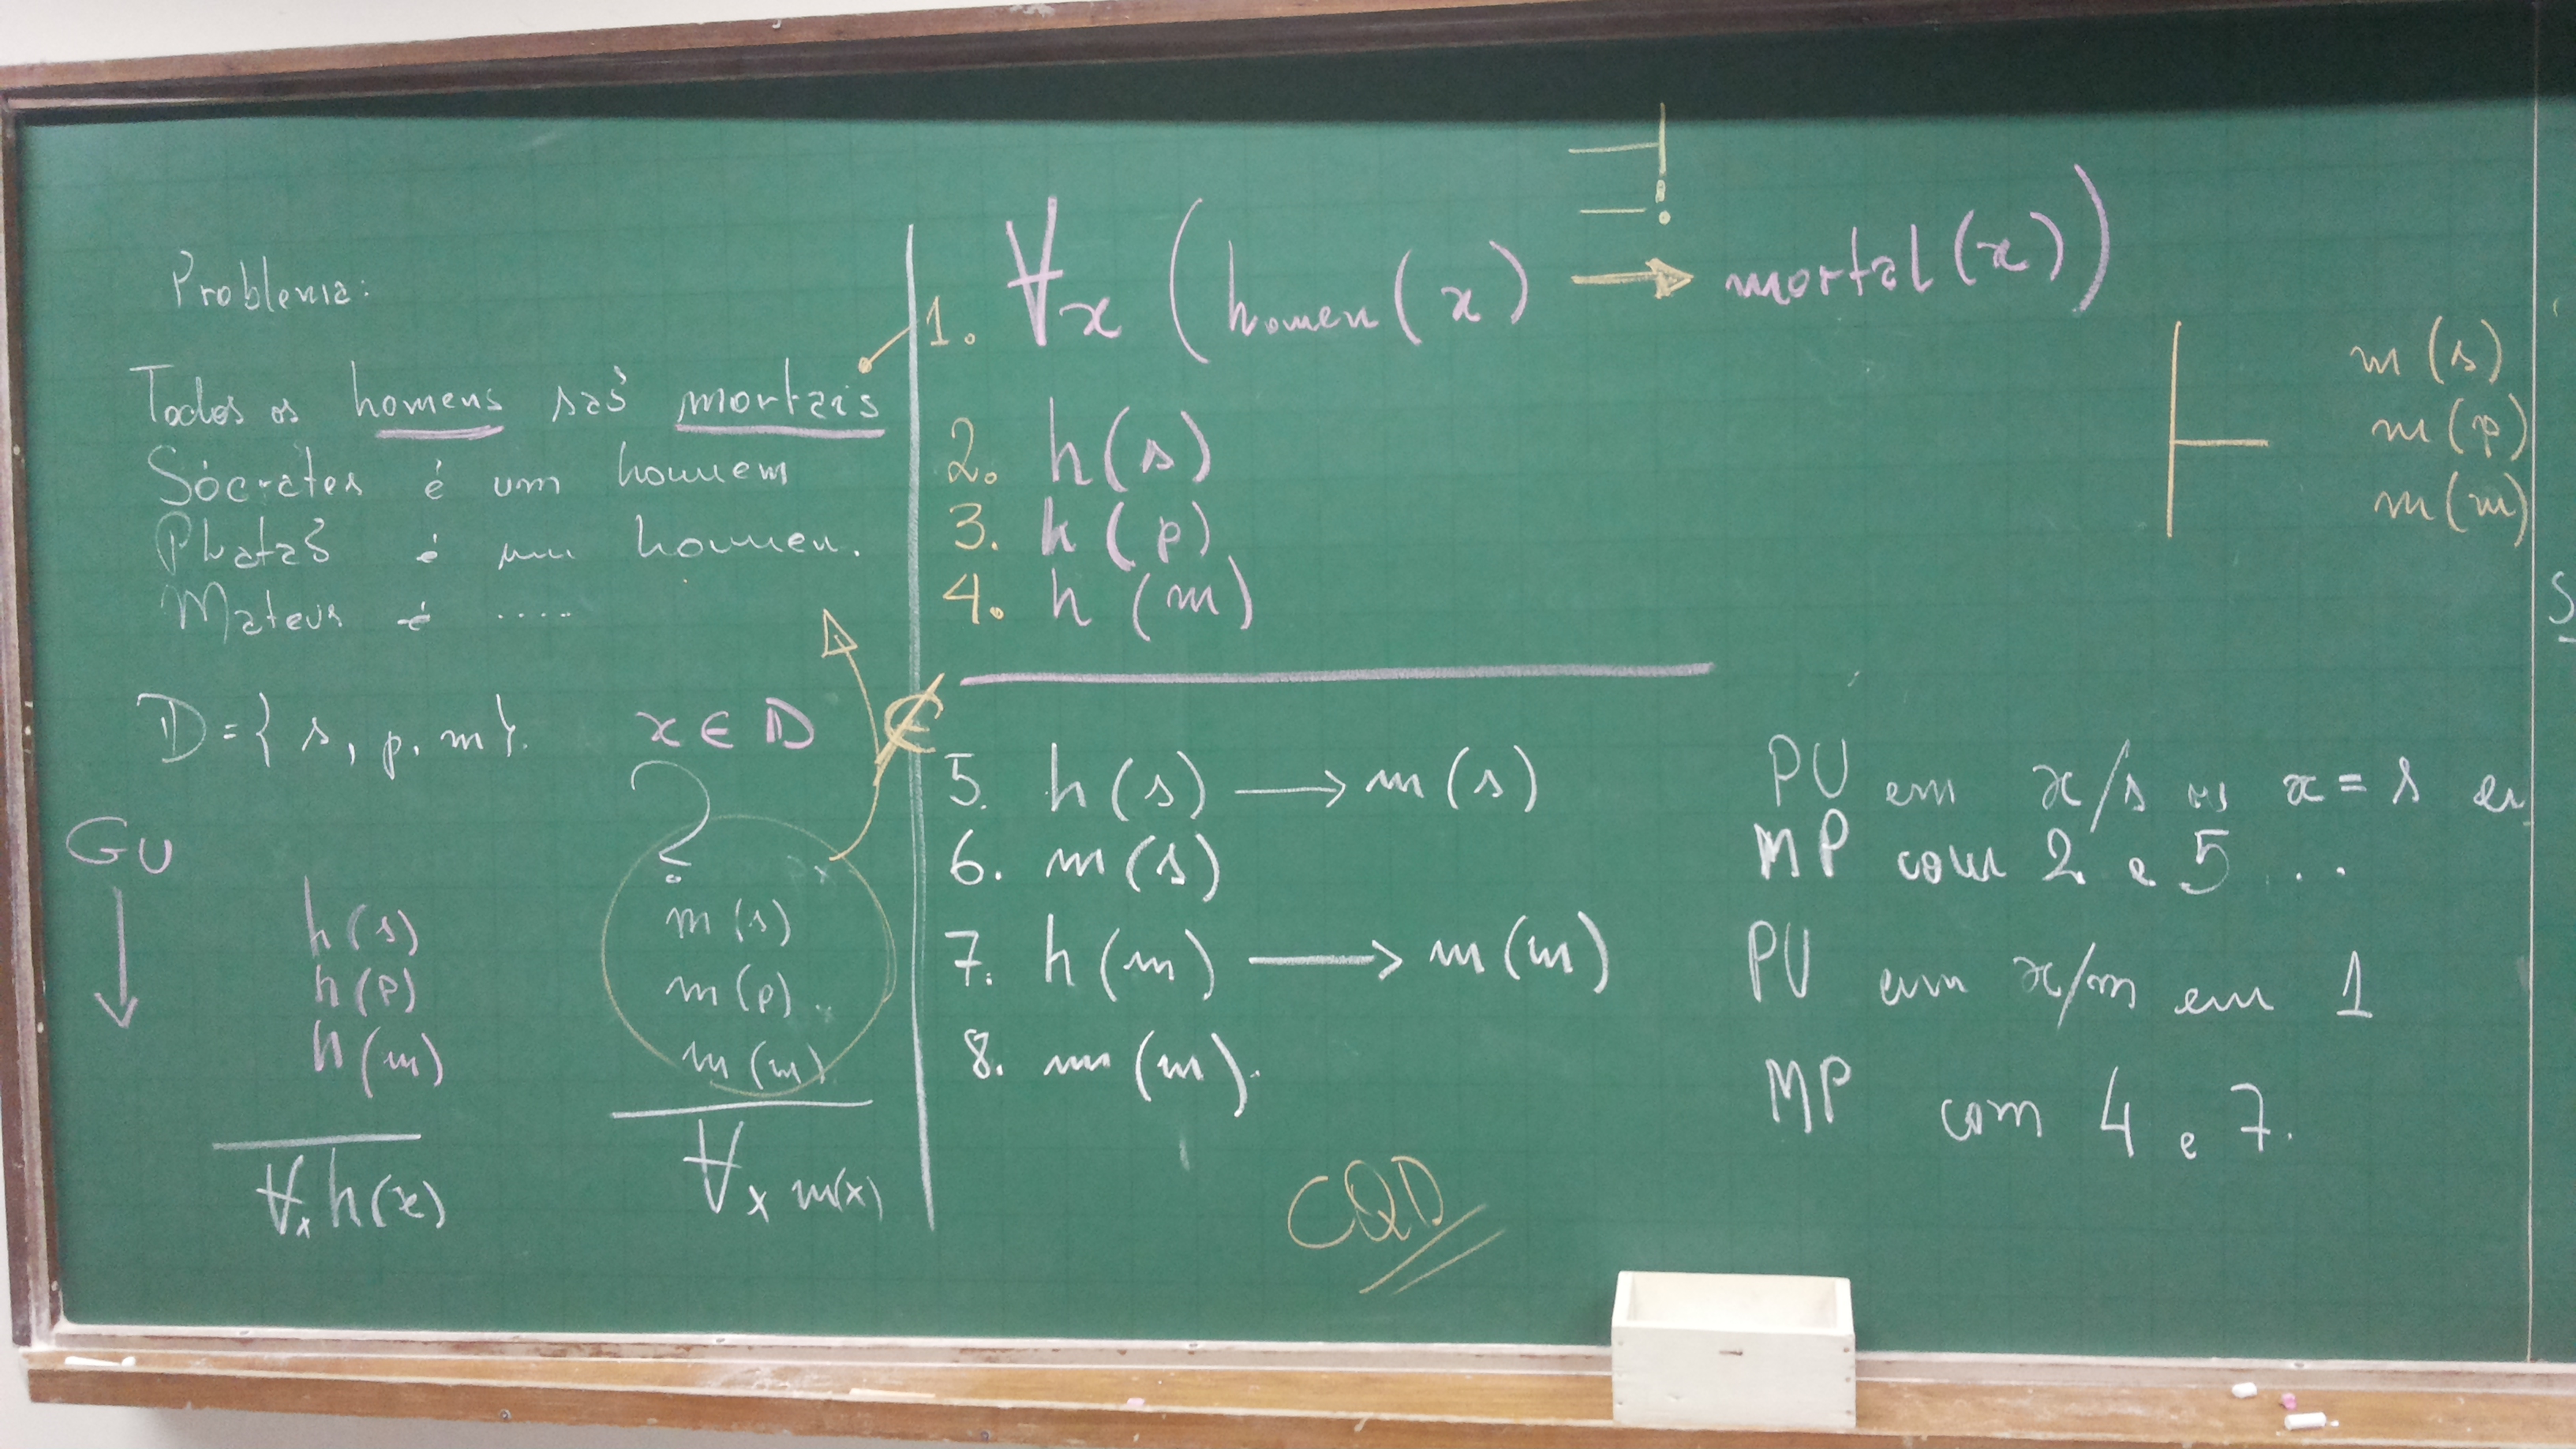 Problema:
Todos os homens são mortais
Sócrates é um homem
Platão é um homem.
Mateus é ....
D = { s, p, m }.
x ∈ D
∉
GU
?
h(s)
h(p)
h(m)
∀x h(x)
m(s)
m(p)
m(m)
∀x m(x)
!
1. ∀x (homem(x) → mortal(x))
2. h(s)
3. h(p)
4. h(m)
⊢ m(s)
m(p)
m(m)
5. h(s) → m(s) PU em x/s x = s em
6. m(s) MP com 2 e 5 ..
7. h(m) → m(m) PU em x/m em 1
8. m(m). MP com 4 e 7.
CQD
S